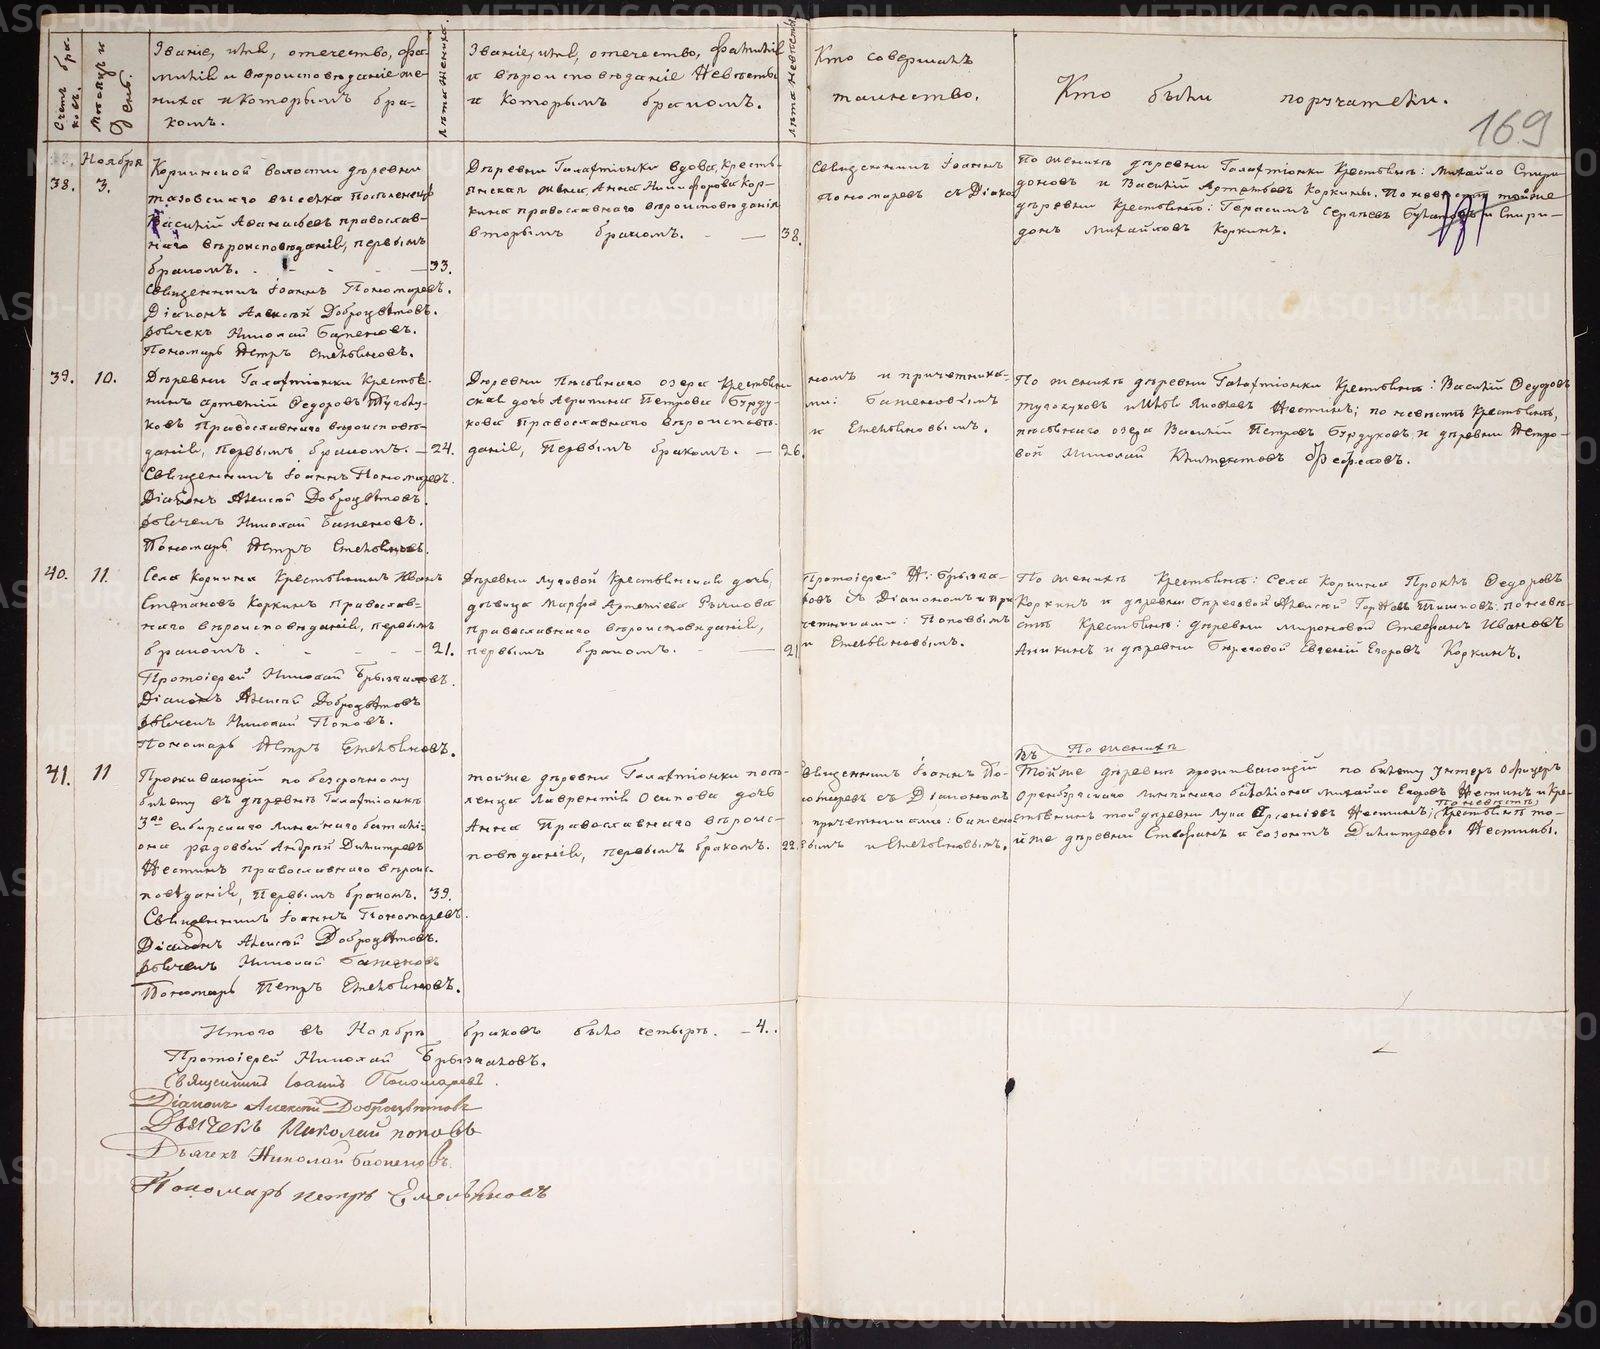 Счетъ браковъ.
Мѣсяцъ и День.
Званіе, имя, отечество, фа-
милія и вѣроисповѣданіе же-
ниха и которымъ бра-
комъ.
Лѣта жениха.
Званіе, имя, отечество, фамилія
и вѣроисповѣданіе Невѣсты
и которымъ бракомъ.
Лѣта невѣсты
Кто совершалъ
таинство.
Кто были поручатели.
169
Ноября
38. 3.
Коркинской волости деревни
высѣлка Поселенецъ
Василій Аванасьевъ православ-
наго вѣроисповѣданія, первымъ
бракомъ. - - - 33.
Священникъ Іоаннъ Пономаревъ.
Діаконъ Алексѣй Доброцвѣтовъ.
Дьячекъ Николай Баженовъ.
Пономарь Петръ Емельяновъ.
Деревни Галактіонки вдова, кресть-
янская жена, Анна Никифорова Кор-
кина православнаго вѣроисповѣданія
вторымъ бракомъ. - - 38.
Священникъ Іоаннъ
Пономаревъ съ Діако-
По женихѣ деревни Галактіонки Крестьяне: Михайло Спири-
доновъ и Василій Артемьевъ Коркины. По невѣстѣ тойже
деревни Крестьяне: Герасимъ Сергѣевъ и Спири-
донъ Михайловъ Коркинъ.
39. 10.
Деревни Галактіонки Крестья-
нинъ Артемій Ѳедоровъ
Православнаго вѣроисповѣ-
данія, Первымъ бракомъ. - 24.
Священникъ Іоаннъ Пономаревъ.
Діаконъ Алексѣй Доброцвѣтовъ.
Дьячекъ Николай Баженовъ.
Пономарь Петръ Емельяновъ.
Деревни озера Крестьян-
ская дочь Агрипина Петрова Бурду-
кова Православнаго вѣроисповѣ-
данія, Первымъ бракомъ. - 26.
номъ и причетника-
ми: Баженовымъ
и Емельяновымъ.
По женихѣ деревни Галактіонки Крестьяне: Василій Ѳедоровъ
и Яковлевъ Нестинъ; по невѣстѣ Крестьяне,
озера Василій Петровъ Бурдуковъ, и деревни Петро-
вой Николай
40. 11.
Села Коркина Крестьянинъ Иванъ
Степановъ Коркинъ православ-
наго вѣроисповѣданія, первымъ
бракомъ. - - - 21.
Протоіерей Николай Брызгаловъ.
Діаконъ Алексѣй Доброцвѣтовъ
Дьячекъ Николай Поповъ.
Пономарь Петръ Емельяновъ.
Деревни Луговой Крестьянская дочь,
дѣвица Марфа Артемьева Рычкова
православнаго вѣроисповѣданія,
первымъ бракомъ. - 21
Протоіерей Н: Брызга-
ловъ съ Діакономъ и при
четниками: Поповымъ
и Емельяновымъ.
По женихѣ Крестьяне: села Коркина Ѳедоровъ
Коркинъ и деревни Алексѣй по невѣ-
стѣ Крестьяне: деревни Мироновой Стефанъ Ивановъ
Аникинъ и деревни Евгеній Егоровъ Коркинъ.
41. 11
Проживающій по безсрочному
билету въ деревнѣ Галактіонкѣ
3го Сибирскаго Линейнаго баталі-
она рядовый Андрей Димитріевъ
Нестинъ православнаго вѣроис-
повѣданія, Первымъ бракомъ. 39.
Священникъ Іоаннъ Пономаревъ.
Діаконъ Алексѣй Доброцвѣтовъ.
Дьячекъ Николай Баженовъ
Пономарь Петръ Емельяновъ.
тойже деревни Галактіонки посе-
ленца Лаврентія Осипова дочь
Анна Православнаго вѣроис-
повѣданія, первымъ бракомъ. 22.
Священникъ Іоаннъ По-
номаревъ съ Діакономъ
и причетниками: Бажено-
вымъ и Емельяновымъ.
По женихѣ
Тойже деревни проживающій по билету унтеръ офицеръ
Оренбургскаго Линейнаго баталіона Михайло Егоровъ Нестинъ и кре-
стьянинъ той деревни Лука Нестинъ; по невѣстѣ, Крестьяне то-
йже деревни Стефанъ и Созонтъ Димитріевы Нестины.
Итого въ Ноябрѣ браковъ было четыре. - 4.
Протоіерей Николай Брызгаловъ.
Священникъ Іоаннъ Пономаревъ.
Діаконъ Алексѣй Доброцвѣтовъ
Дьячекъ Николай Поповъ
Дьячекъ Николай Баженовъ.
Пономарь Петръ Емельяновъ
METRIKI.GASO-URAL.RU